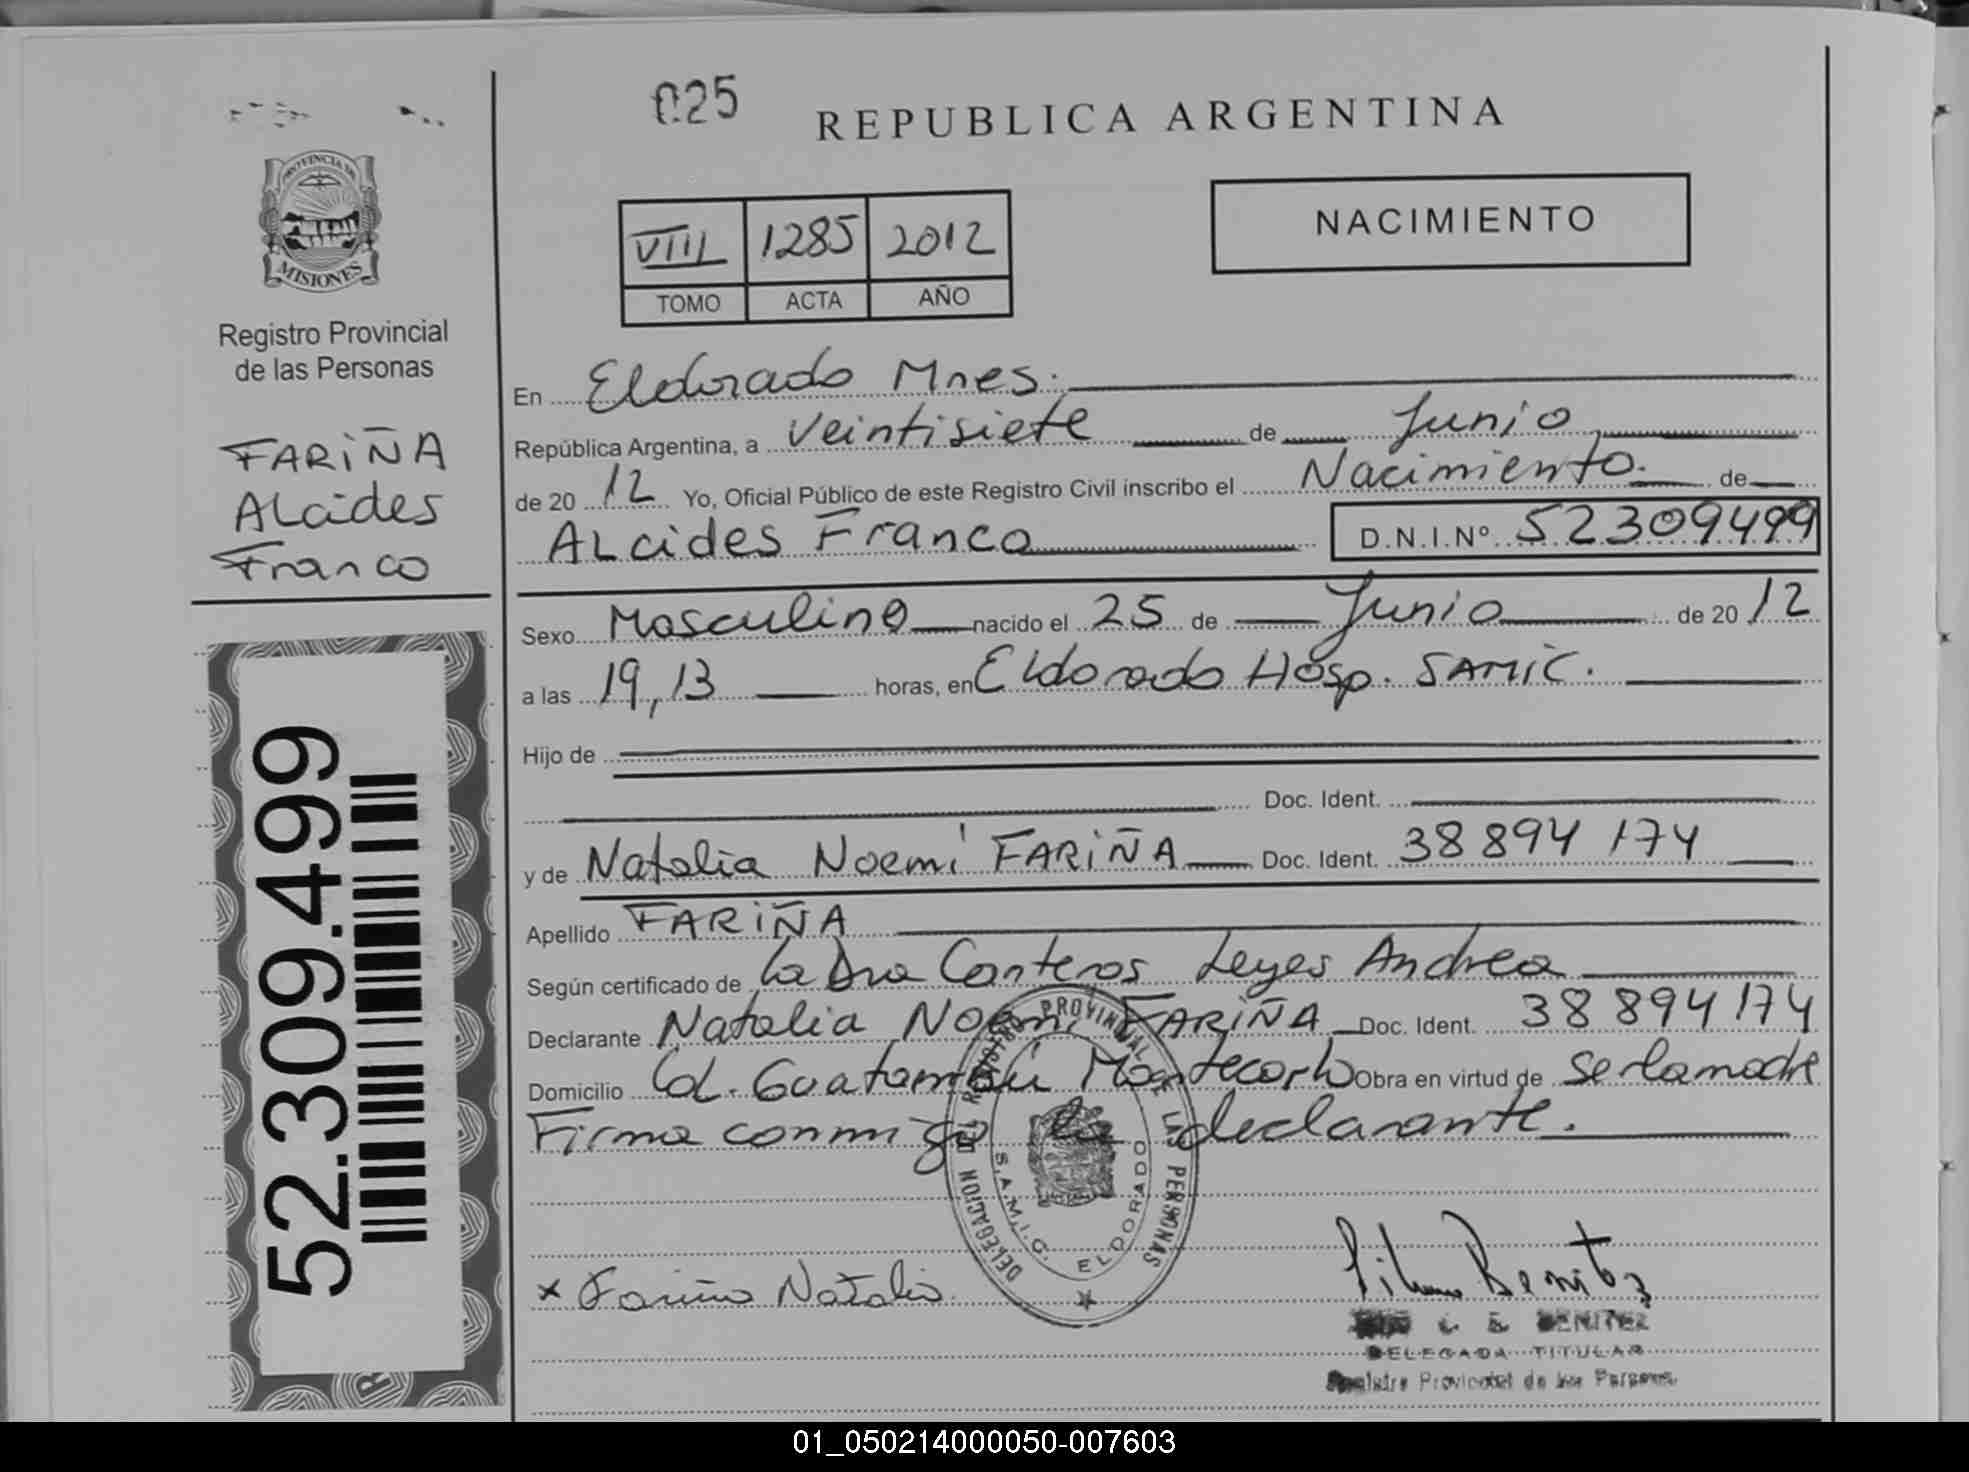 025
REPUBLICA ARGENTINA
PROVINCIA DE
MISIONES
Registro Provincial
de las Personas
FARIÑA
ALcides
Franco
52.309.499
VIII 1285 2012
TOMO ACTA AÑO
NACIMIENTO
En Eldorado Mnes.
República Argentina, a veintisiete de Junio
de 20 12 Yo, Oficial Público de este Registro Civil inscribo el Nacimiento. de
ALcides Franco D.N.I.Nº 52309499
Sexo Masculino nacido el 25 de Junio de 20 12
a las 19,13 horas, en Eldorado Hosp. SAMIC.
Hijo de
Doc. Ident.
y de Natalia Noemí FARIÑA Doc. Ident. 38894174
Apellido FARIÑA
Según certificado de La Dra Conteros Leyes Andrea
Declarante Natalia Noemí FARIÑA Doc. Ident. 38894174
Domicilio Col. Guatambú Montecarlo Obra en virtud de ser la madre
Firma conmigo la declarante.
DELEGACION DEL REGISTRO PROVINCIAL DE LAS PERSONAS
S.A.M.I.C. ELDORADO
x Fariña Natalia
Benitez
BENITEZ
DELEGADA TITULAR
Registro Provincial de las Personas
01_050214000050-007603